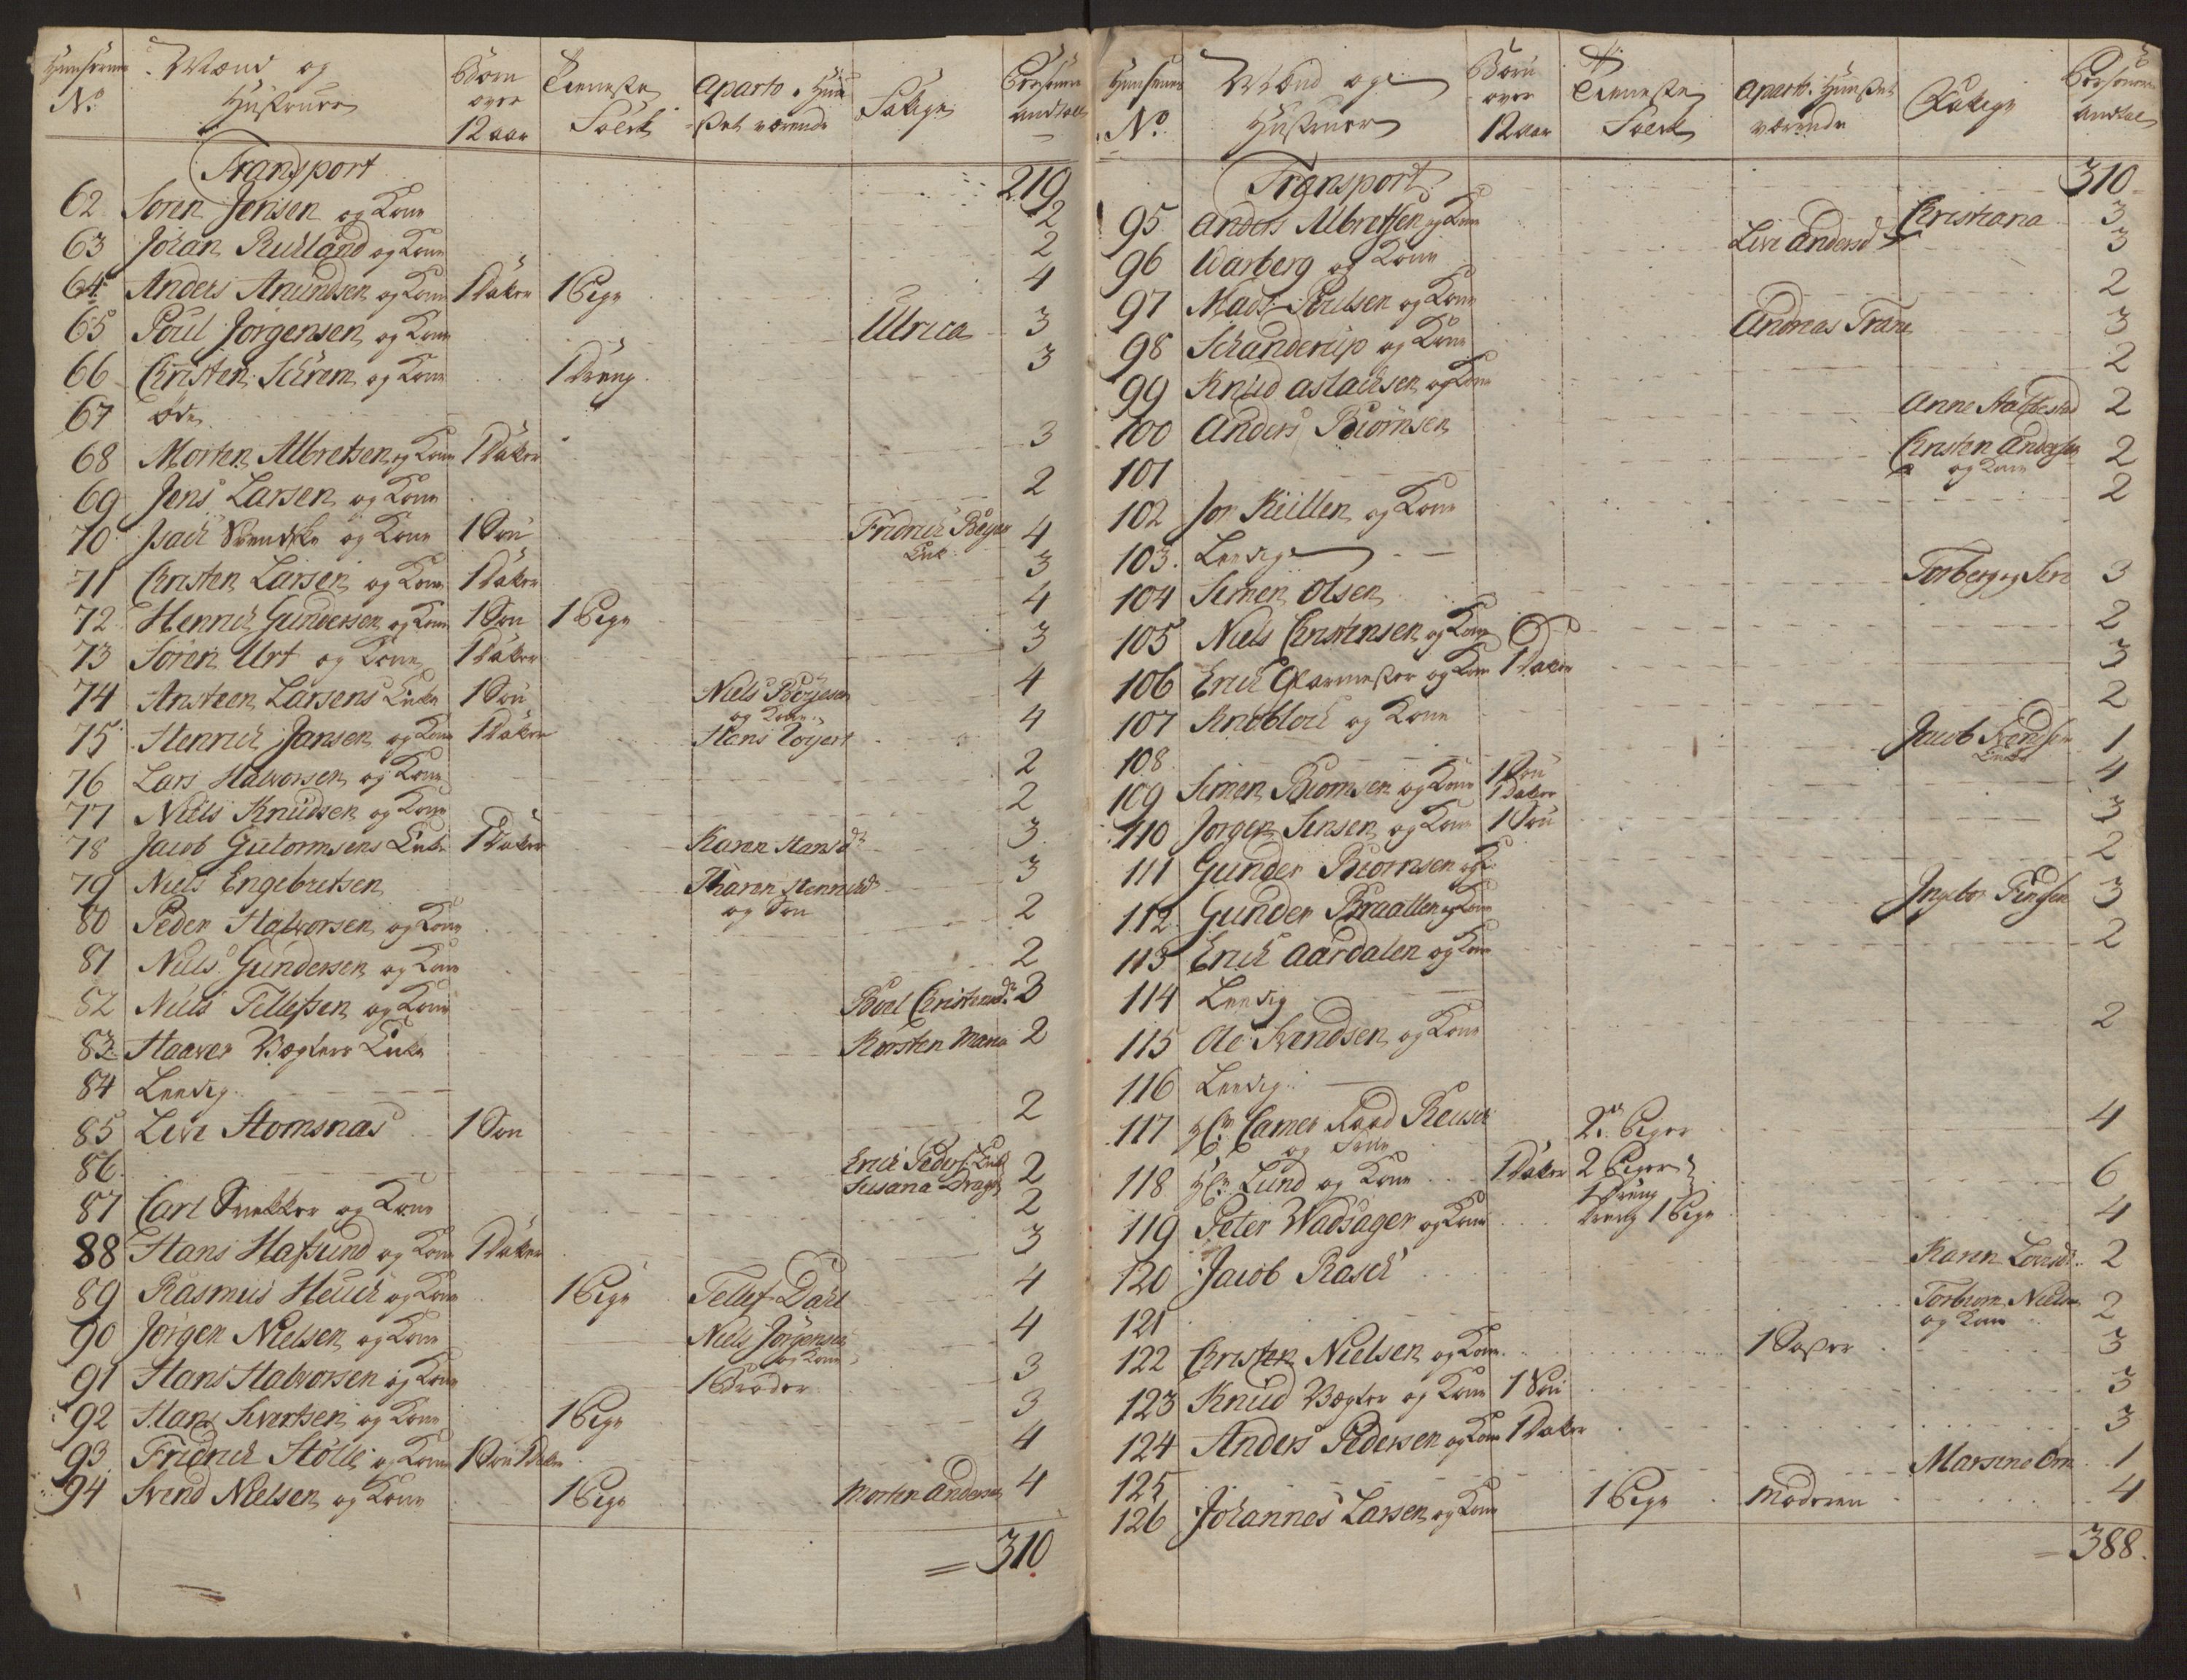 No.
Mænd og
Hustruer
Börn
over
12 aar
Tieneste
Folck
aparte i Huu-
set værende
Fattige
Persohners
andtall
Transport 219
62 Sören Jensen og Kone 2
63 Johan Ruhland og Kone 2
64 Anders Amundsen og Kone 1 Dater 1 Pige 4
65 Poul Jörgensen og Kone Ulrica 3
66 Christen Schrem og Kone 1 Dreng 3
67 öde
68 Morten Albretsen og Kone 1 Dater 3
69 Jens Larsen og Kone 2
70 Isach Svendske og Kone 1 Sön Fridrich Beyer Enke 4
71 Christen Larsen og Kone 1 Dater 3
72 Henrich Gundersen og Kone 1 Sön 1 Pige 4
73 Sören Urt og Kone 1 Dater 3
74 Ansteen Larsens Enke 1 Sön Niels Börjesen og Kone 4
75 Henrich Jansen og Kone 1 Dater Hans 4
76 Lars Halvorsen og Kone 2
77 Niels Knudsen og Kone 2
78 Jacob Gutormsens Enke 1 Dater Karen Hansdr 3
79 Niels Engebretsen Maren Henrichsdr og Sön 3
80 Peder Halvorsen og Kone 2
81 Niels Gundersen og Kone 2
82 Niels Tellefsen og Kone Boel Christensdr 3
83 Haaver Vægters Enke Kirsten Maria 2
84 Leedig
85 Live Stomsnas 1 Sön 2
86 Erich Peders. Enke Susana Dragon 2
87 Carl Snekker og Kone 2
88 Hans Hafsund og Kone 1 Dater 3
89 Rasmus Heuch og Kone 1 Pige Tellef Dahl 4
90 Jörgen Nielsen og Kone Niels Jörgensen og Kone 4
91 Hans Halvorsen og Kone 1 Broder 3
92 Hans Sivertsen og Kone 1 Pige 3
93 Fridrich Stölle og Kone 1 Sön 1 Dater 4
94 Svend Nielsen og Kone 1 Pige Morten Andersen 4
= 310
No.
Mænd og
Hustruer
Börn
over
12 aar
Tieneste
Folck
aparte i Huuset
værende
Fattige
Persohners
Andtal
Transport 310
95 Anders Albretsen og Kone Christiana 3
96 Warberg og Kone Live Andersd 3
97 Mads Poulsen og Kone 2
98 Schanderup og Kone Andreas Trane 3
99 Knud Aslachsen og Kone 2
100 Anders Biörnsen Anne 2
101 Christen Andersen og Kone 2
102 Jor Küllen og Kone 2
103 Leedig
104 Simen Olsen Torberg og Siri 3
105 Niels Christensen og Kone 2
106 Erich Glarmester og Kone 1 Dater 3
107 Knobloch og Kone 2
108 Jacob Enke 1
109 Simen Biörnsen og Kone 1 Sön 1 Dater 4
110 Jörgen Jensen og Kone 1 Sön 3
111 Gunder Biörnsen og K: 2
112 Gunder Braatten og Kone Ingebor 3
113 Erich Aardalen og Kone 2
114 Leedig
115 Ole Svendsen og Kone 2
116 Leedig
117 Hr. Camer Raad Reusch og Frue 2de Piger 4
118 Hr. Lund og Kone 1 Dater 2 Piger 1 Dreng 6
119 Peter Wadsager og Kone Dreng 1 Pige 4
120 Jacob Rasch Karen 2
121 Torbiorn Nielsen og Kone 2
122 Christen Nielsen og Kone 1 Söster 3
123 Knud Vægter og Kone 1 Sön 3
124 Anders Pedersen og Kone 1 Dater 3
125 1
126 Johannes Larsen og Kone 1 Pige Moderen 4
= 388.